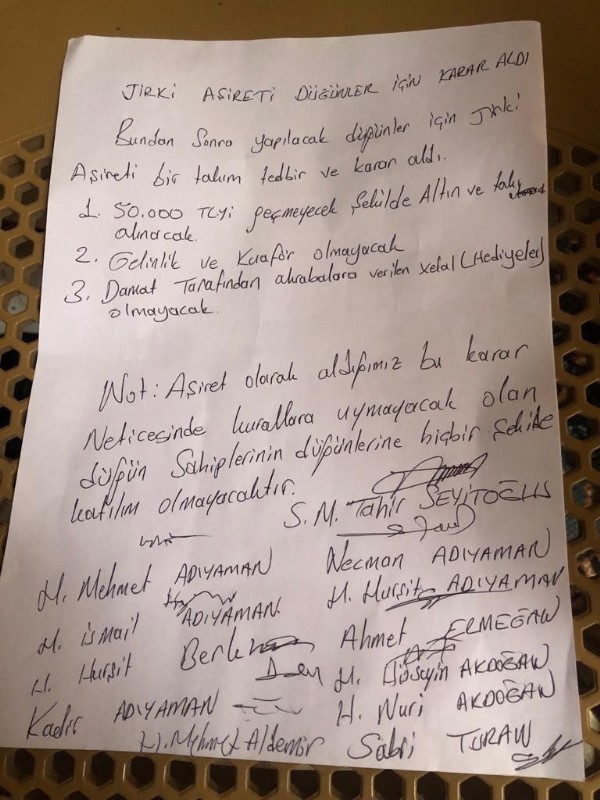 JİRKİ AŞİRETİ DÜĞÜNLER İÇİN KARAR ALDI
Bundan Sonra yapılacak düğünler için Jirki
Aşireti bir takım tedbir ve karar aldı.
1. 50.000 TLyi geçmeyecek Şekilde Altın ve takı
alınacak.
2. Gelinlik ve Kuaför olmayacak
3. Damat Tarafından akrabalara verilen xelat (Hediyeler)
olmayacak.
Not: Aşiret olarak aldığımız bu karar
Neticesinde kurallara uymayacak olan
düğün Sahiplerinin düğünlerine hiçbir Şekilde
katılım olmayacaktır.
S.M. Tahir SEYİTOĞLU
H. Mehmet ADIYAMAN Necman ADIYAMAN
H. İsmail ADIYAMAN H. Hurşit ADIYAMAN
H. Hurşit Ahmet ERMEĞAN
H. Hüseyin AKDOĞAN
Kadir ADIYAMAN H. Nuri AKDOĞAN
H. Mehmet Aldemir Sabri TURAN